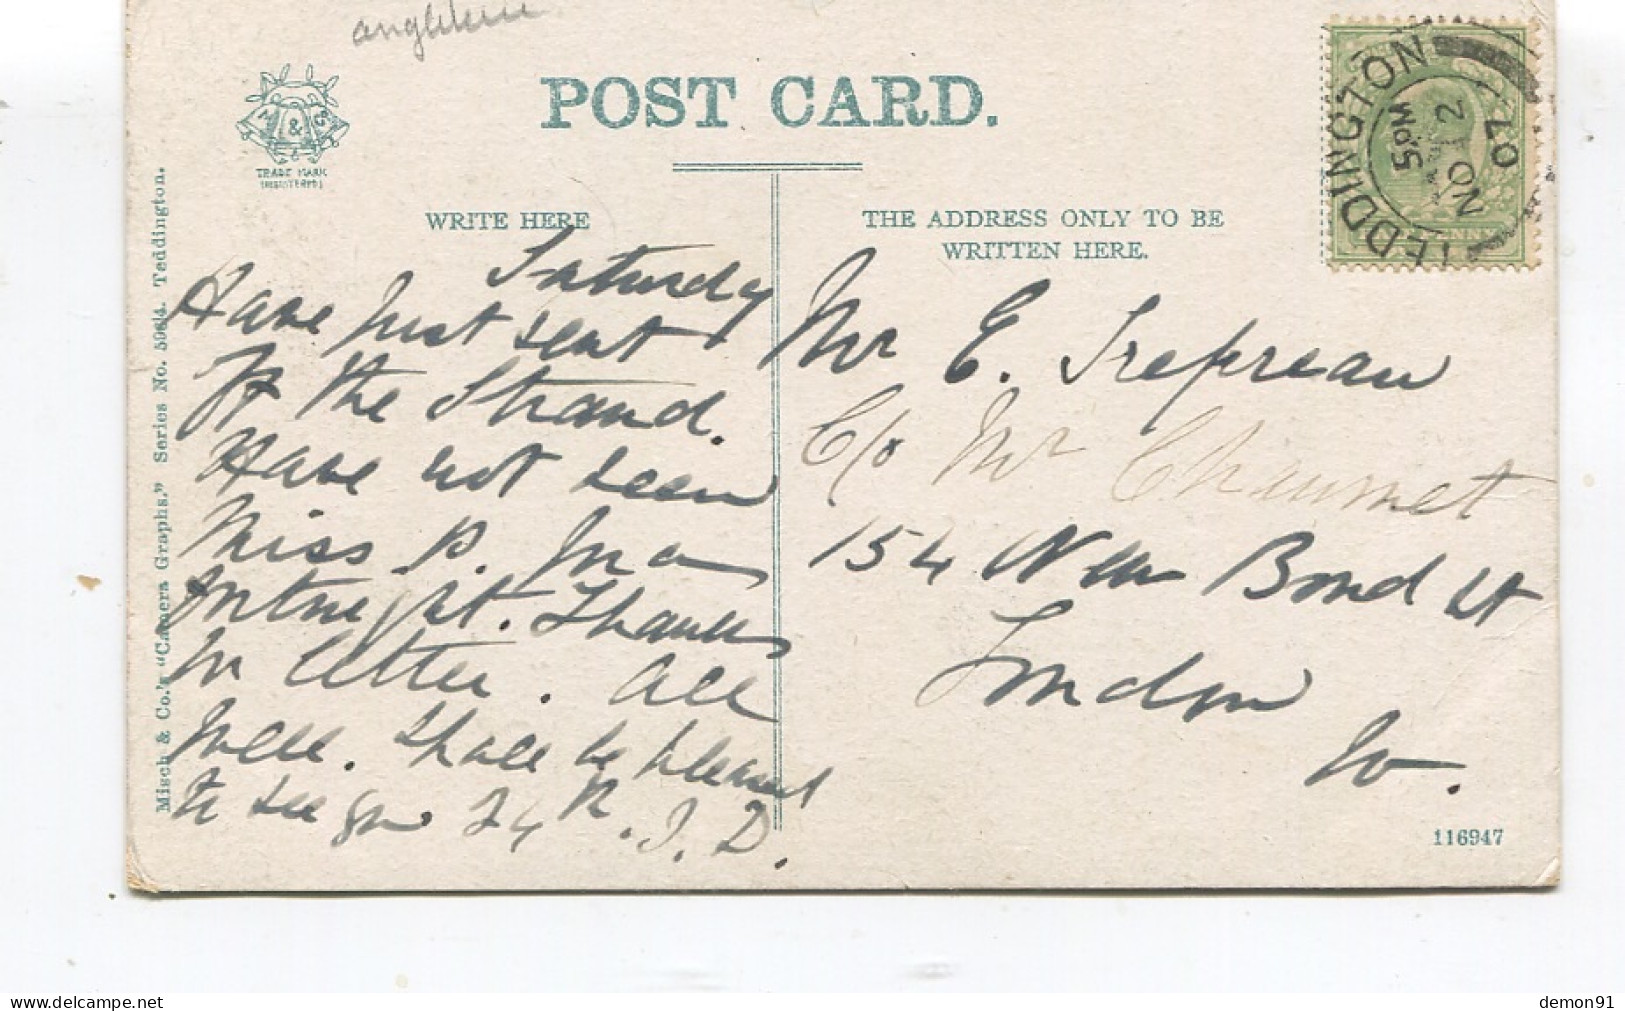 POST CARD.
M & S
TRADE MARK
(REGISTERED)
WRITE HERE
THE ADDRESS ONLY TO BE
WRITTEN HERE.
TEDDINGTON
5 PM
NO 2
07
Misch & Co.'s "Camera Graphs." Series No. 506/4. Teddington.
Saturday
Have just sent
the Strand.
Have not seen
Miss P. for a
fortnight. Thanks
for letter. All
well. Shall be pleased
to see you 24th. J. D.
Mr E. Trepreau
C/o Mr Chaumet
154 New Bond St
London
W.
116947
www.delcampe.net
demon91